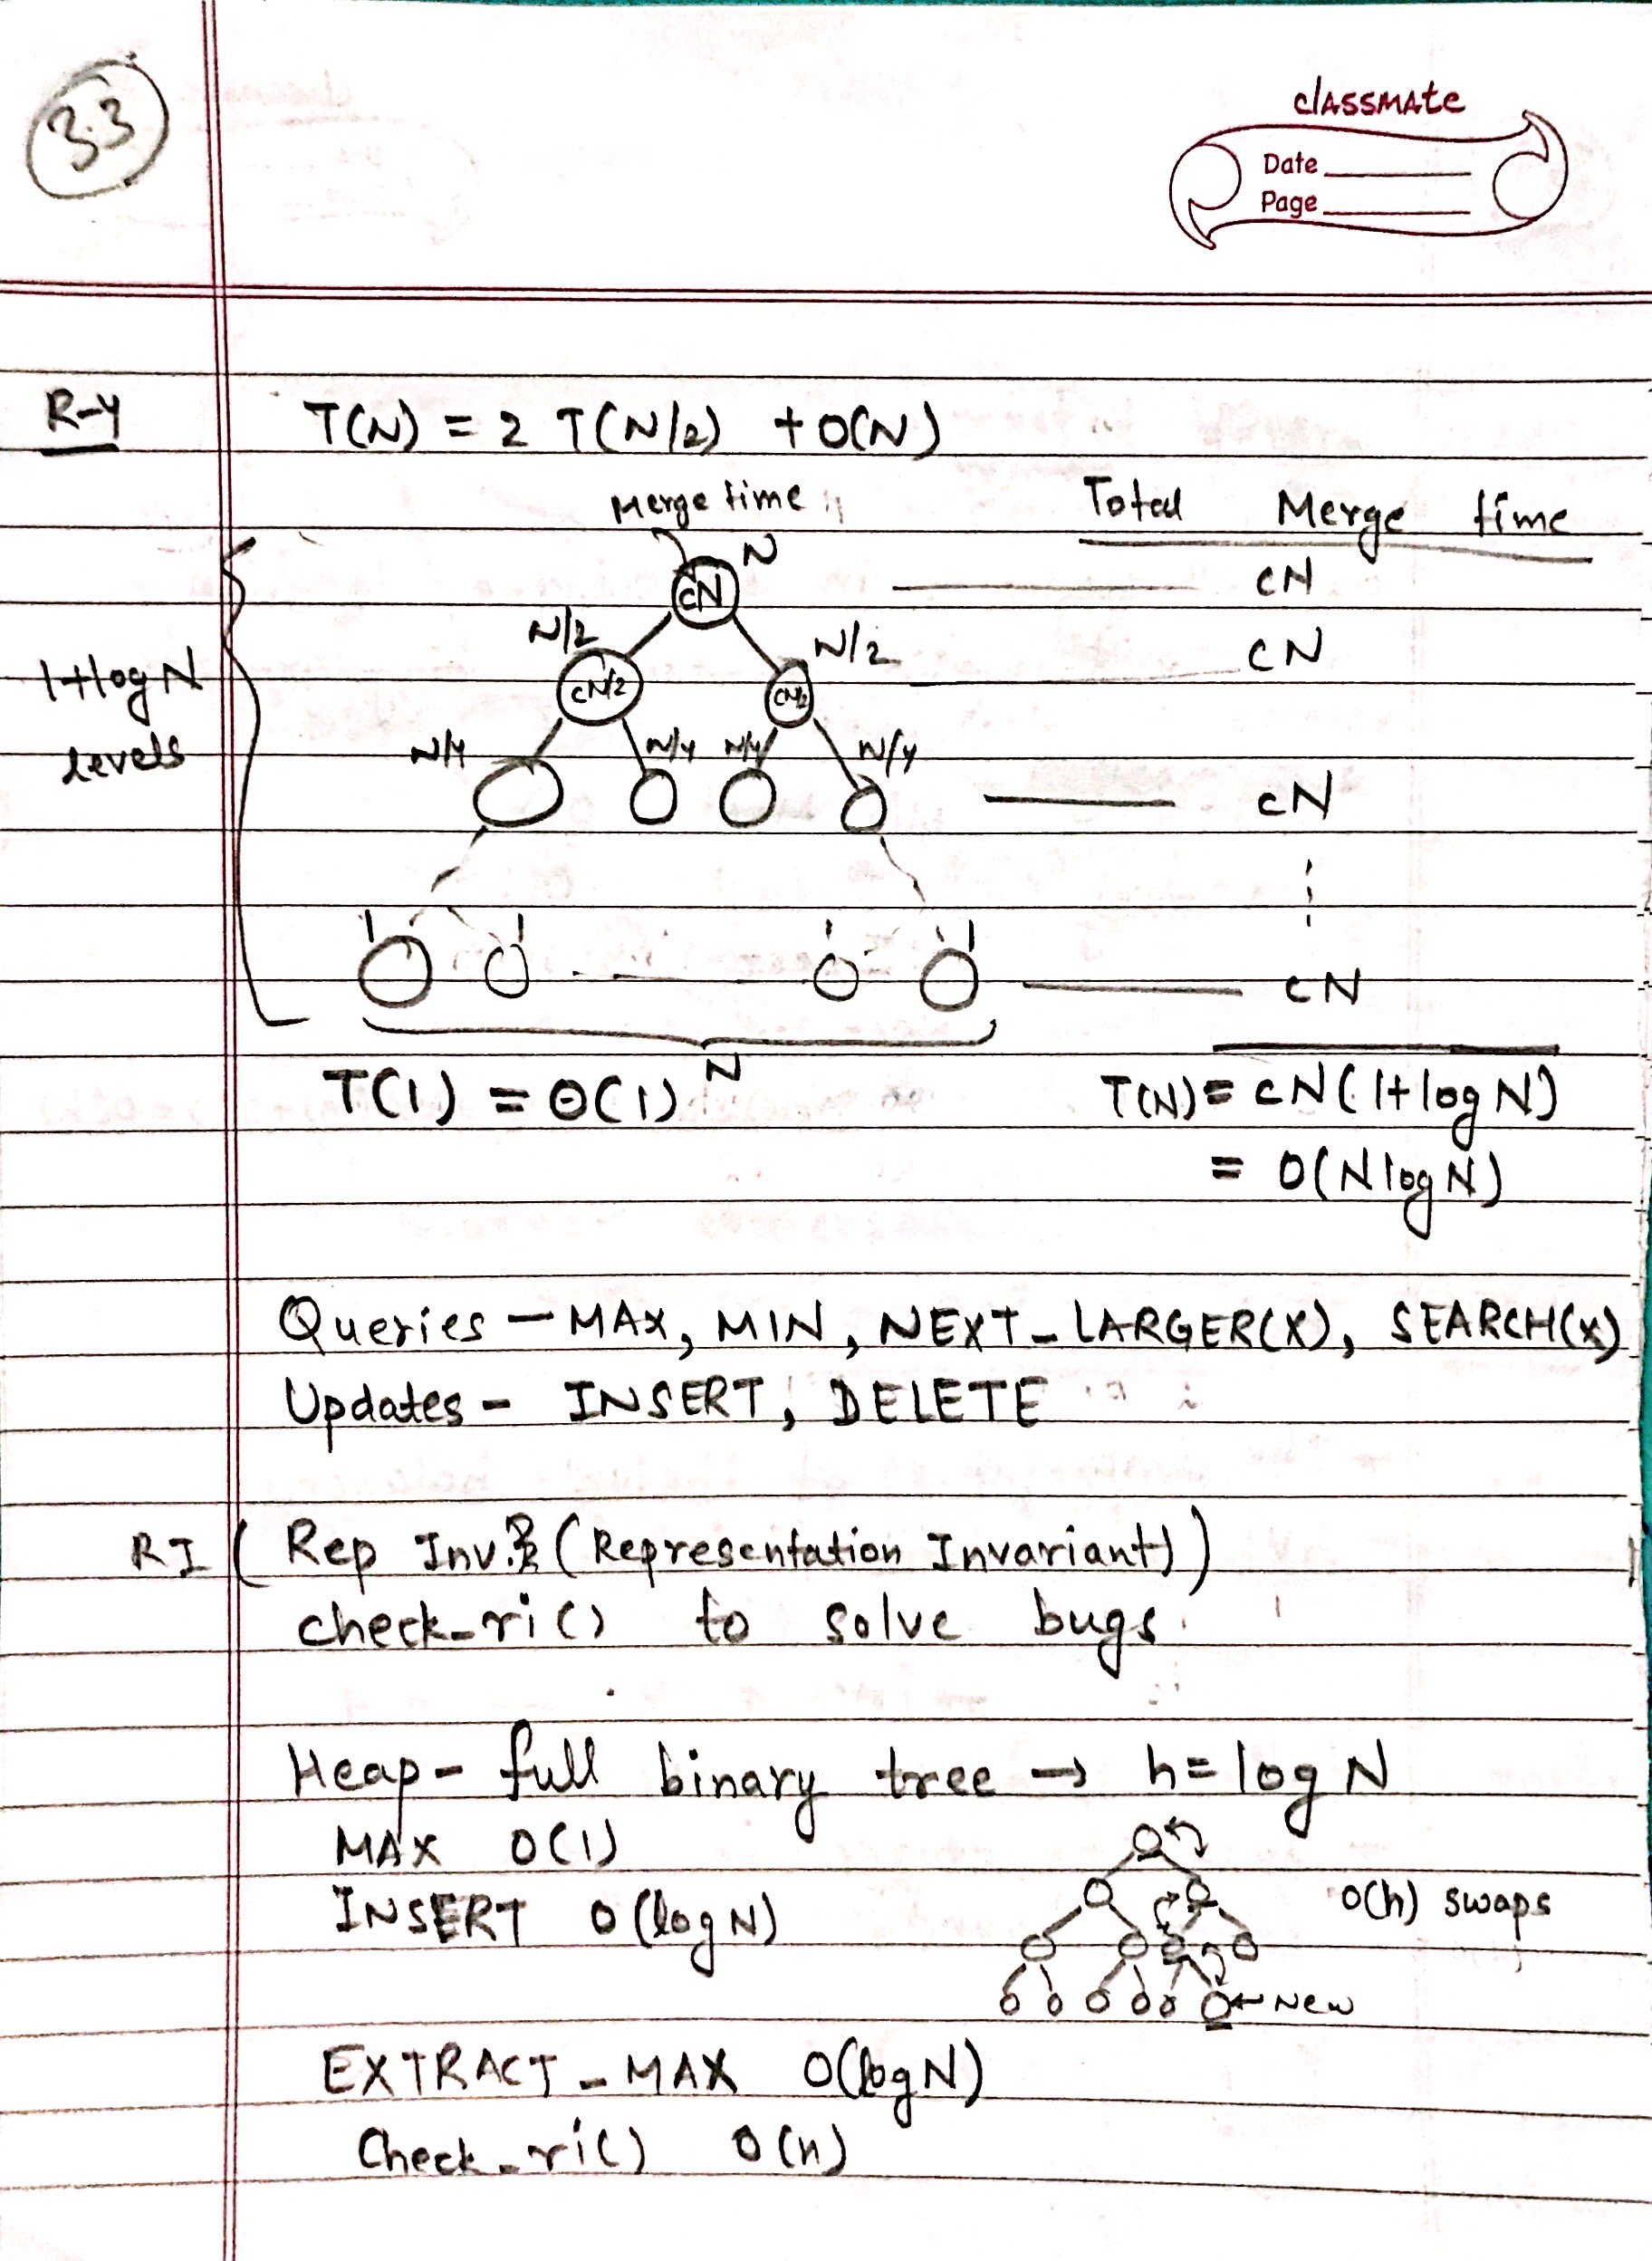 3.3
classmate
Date
Page
R-4 T(N) = 2 T(N/2) + O(N)
Merge time Total Merge time
N
cN cN
N/2 N/2 cN
1+log N
levels
cN/2 cN/2
N/4 N/4 N/4 N/4
cN
1 1 1 1
cN
N
T(1) = O(1) T(N) = cN(1+log N)
= O(N log N)
Queries - MAX, MIN, NEXT_LARGER(X), SEARCH(X)
Updates - INSERT, DELETE
RI ( Rep Inv. (Representation Invariant))
check_ri() to solve bugs.
Heap - full binary tree → h = log N
MAX O(1)
INSERT O(log N) O(h) swaps
← New
EXTRACT_MAX O(log N)
Check_ri() O(n)